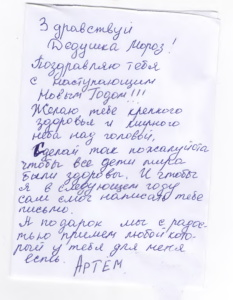 Здравствуй
Дедушка Мороз!
Поздравляю тебя
с наступающим
Новым Годом!!!
Желаю тебе крепкого
здоровья и мирного
неба над головой.
Сделай так пожалуйста
чтобы все дети мира
были здоровы. И чтобы
я в следующем году
сам смог написать тебе
письмо.
А подарок мы с радос-
тью примем любой кото-
рой у тебя для меня
есть. АРТЕМ